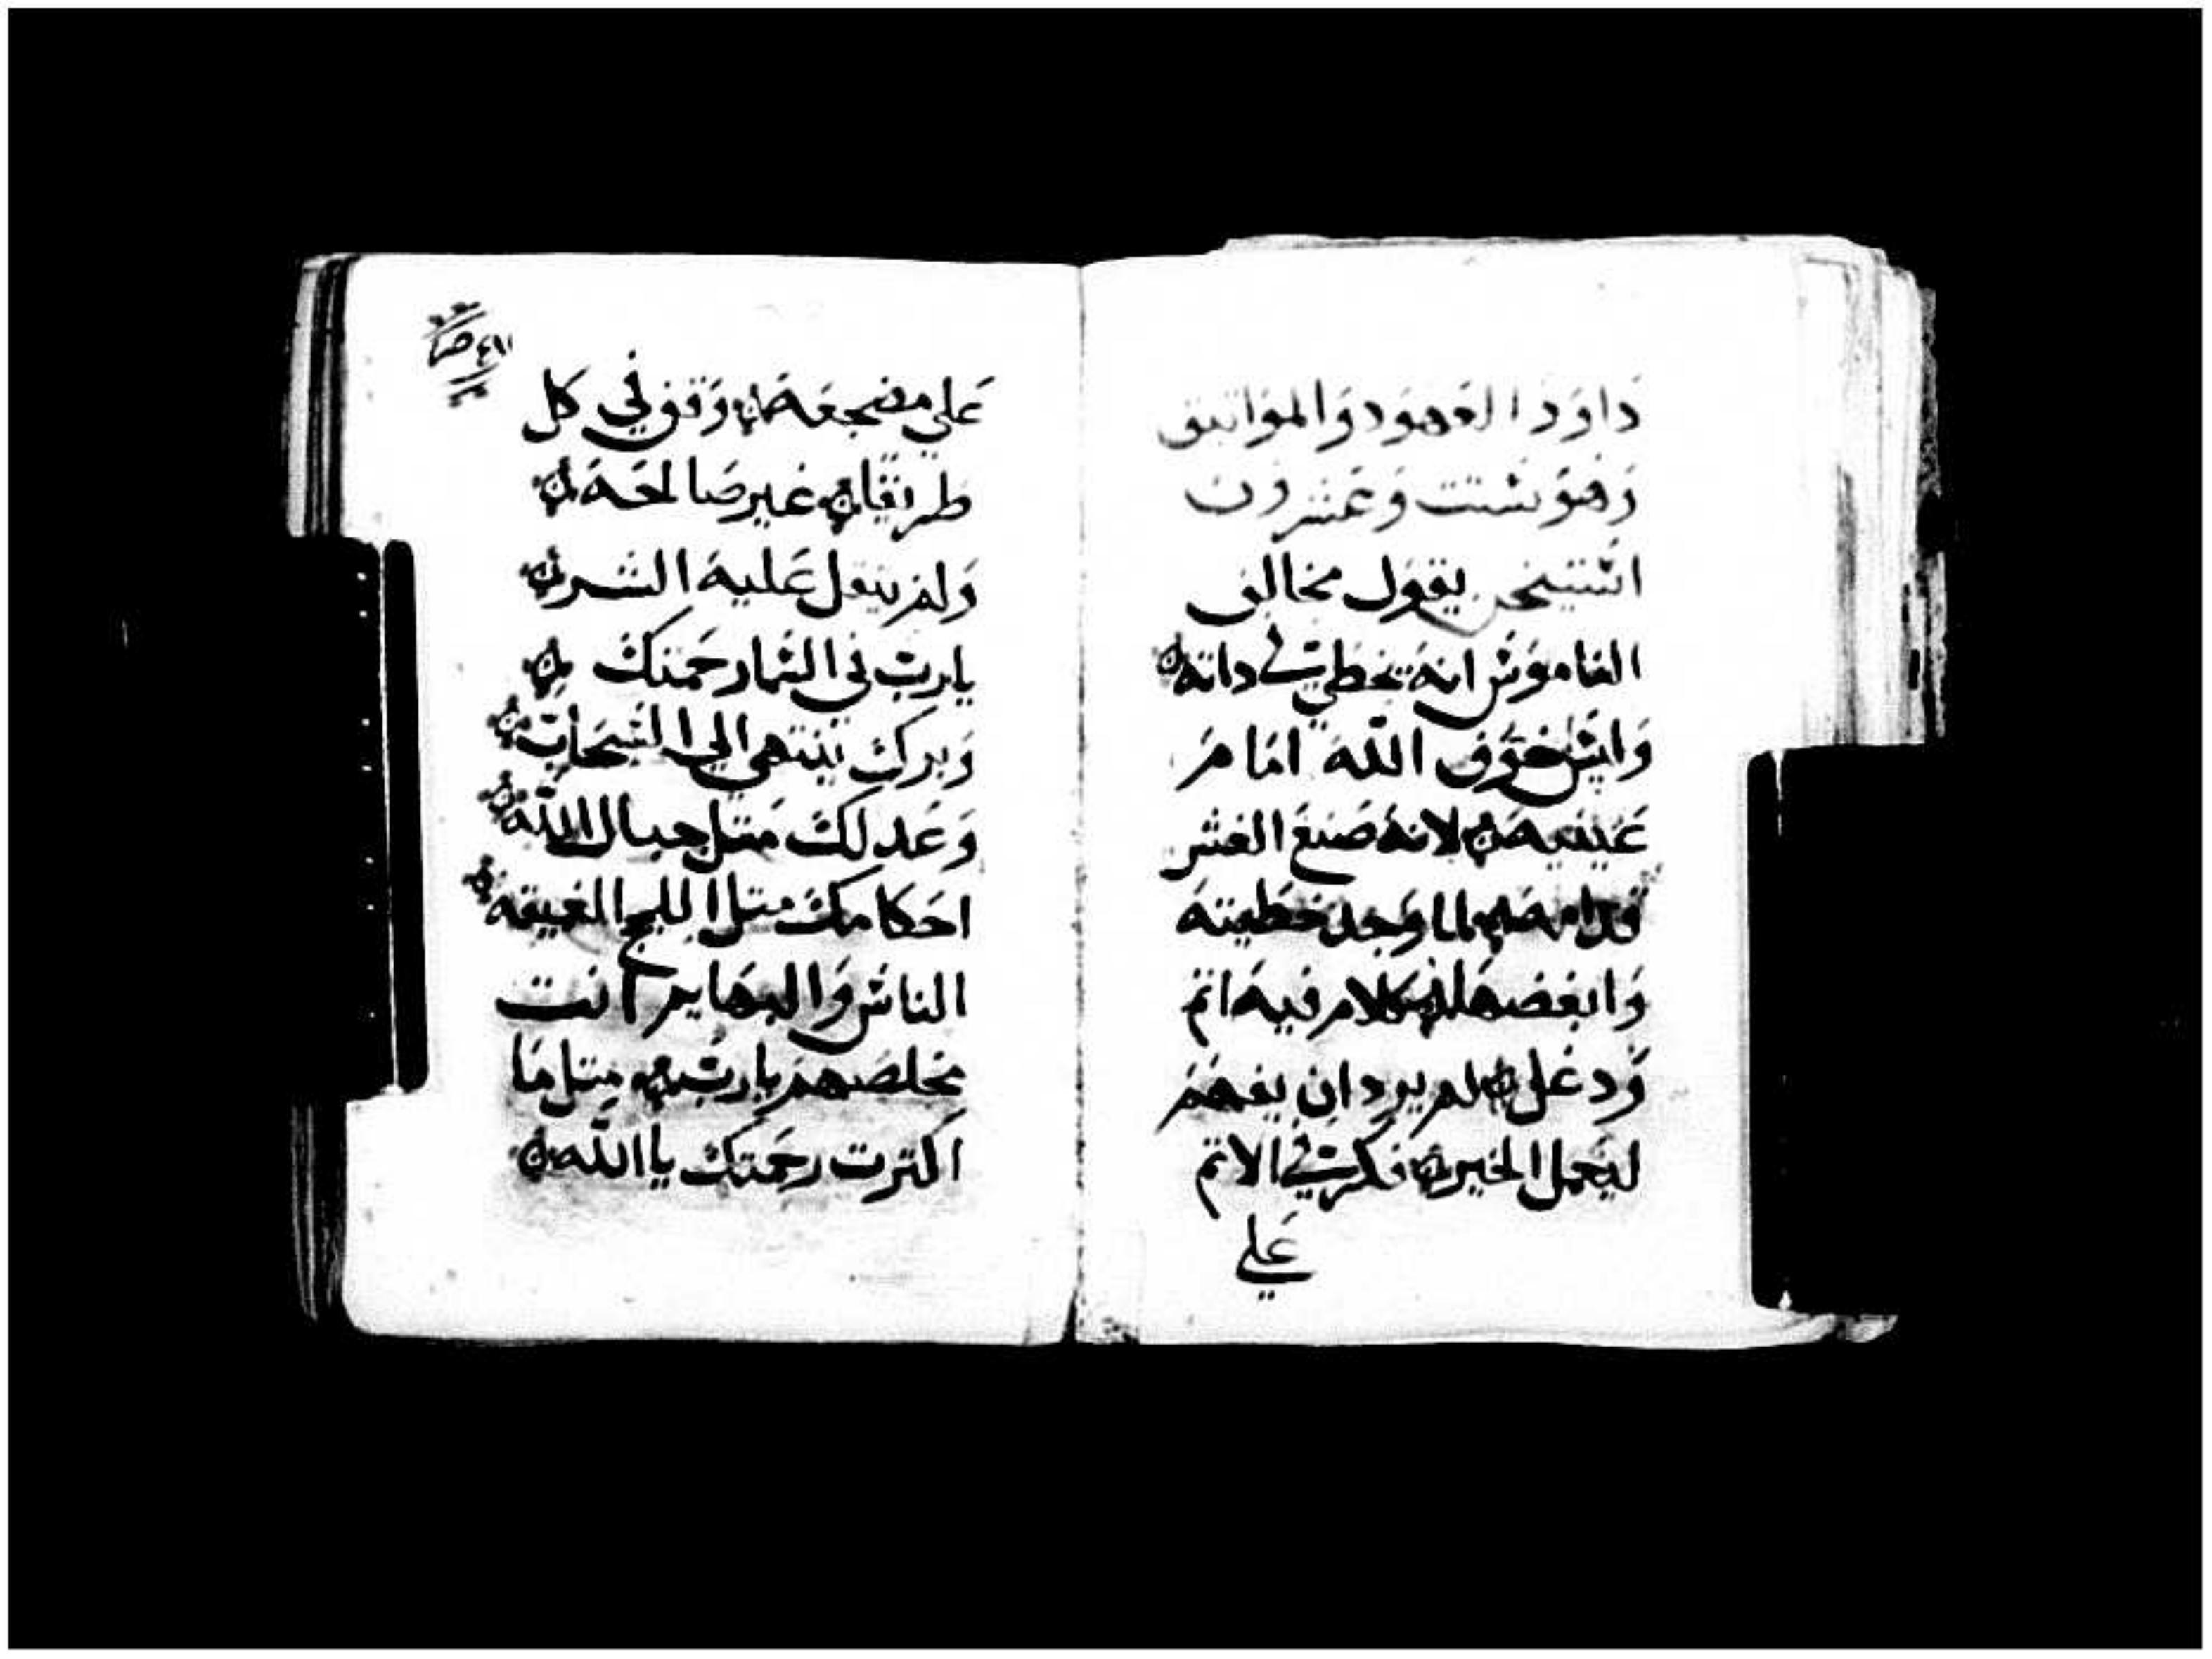 داود العهود والمواتيق
وهو ستت وعشرون
استيخن يقول مخالف
الناموس انه يخطي في داته
وليس خوف الله امام
عينيه لانه صنع الغش
قدامه لما وجد خطيته
وابغضها كلام فيه اتم
ودغل لم يرد ان يفهم
ليعمل الخير فكر في الاتم
علي
علي مضجعه وقف في كل
طريقا غير صالحه
ولم يتقل عليه الشر
يارب في السما رحمتك
وبرك ينتهي الي السحاب
وعدلك متل جبال الله
احكامك متل اللجج العميقه
الناس والبهايم انت
مخلصهم يارب متل ما
اكترت رحمتك يا الله